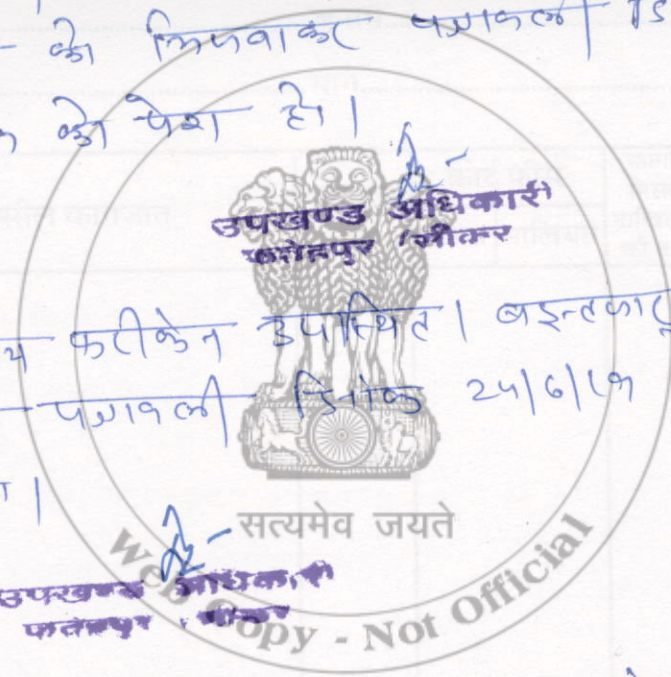 को भिजवाकर पत्रावली
को पेश हो।
उपखण्ड अधिकारी
फतेहपुर (सीकर
फरीकेन उपस्थित।
पत्रावली दिनांक 24/6/19
सत्यमेव जयते
उपखण्ड अधिकारी
फतेहपुर, सीकर
Web Copy - Not Official